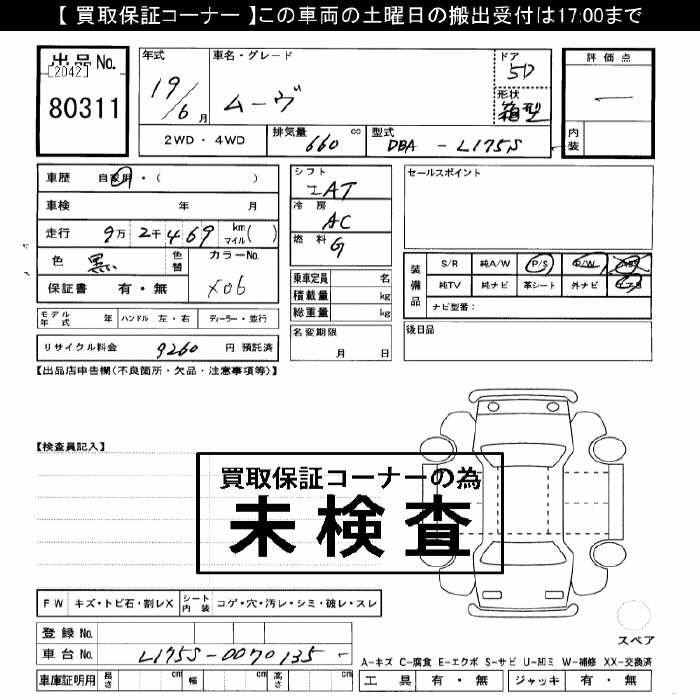 【 買取保証コーナー 】この車両の土曜日の搬出受付は17:00まで
出品No.
[2042]
80311
年式 車名・グレード ドア 5D
19/6月 ムーヴ 形状 箱型
2WD・4WD 排気量 660 cc 型式 DBA - L175S
評価点
内装
車歴 自家用・( )
車検 年 月
走行 9万2千469 km マイル( )
色 黒 色替 カラーNo. X06
保証書 有・無
モデル年式 年 ハンドル 左・右 ディーラー・並行
リサイクル料金 9260 円 預託済
シフト
IAT
冷房
AC
燃料
G
乗車定員 名
積載量 kg
総重量 kg
名変期限
月 日
セールスポイント
装備品
S/R 純A/W P/S P/W ABS
純TV 純ナビ 革シート 外ナビ エアB
ナビ型番:
後日品
【出品店申告欄(不良箇所・欠品・注意事項等)】
【検査員記入】
買取保証コーナーの為
未検査
FW キズ・トビ石・割レX シート内装 コゲ・穴・汚レ・シミ・破レ・スレ
登録No.
車台No. L175S-0070135
車庫証明用 長さ cm 幅 cm 高さ cm
スペア
A-キズ C-腐食 E-エクボ S-サビ U-凹ミ W-補修 XX-交換済
工具 有・無 ジャッキ 有・無